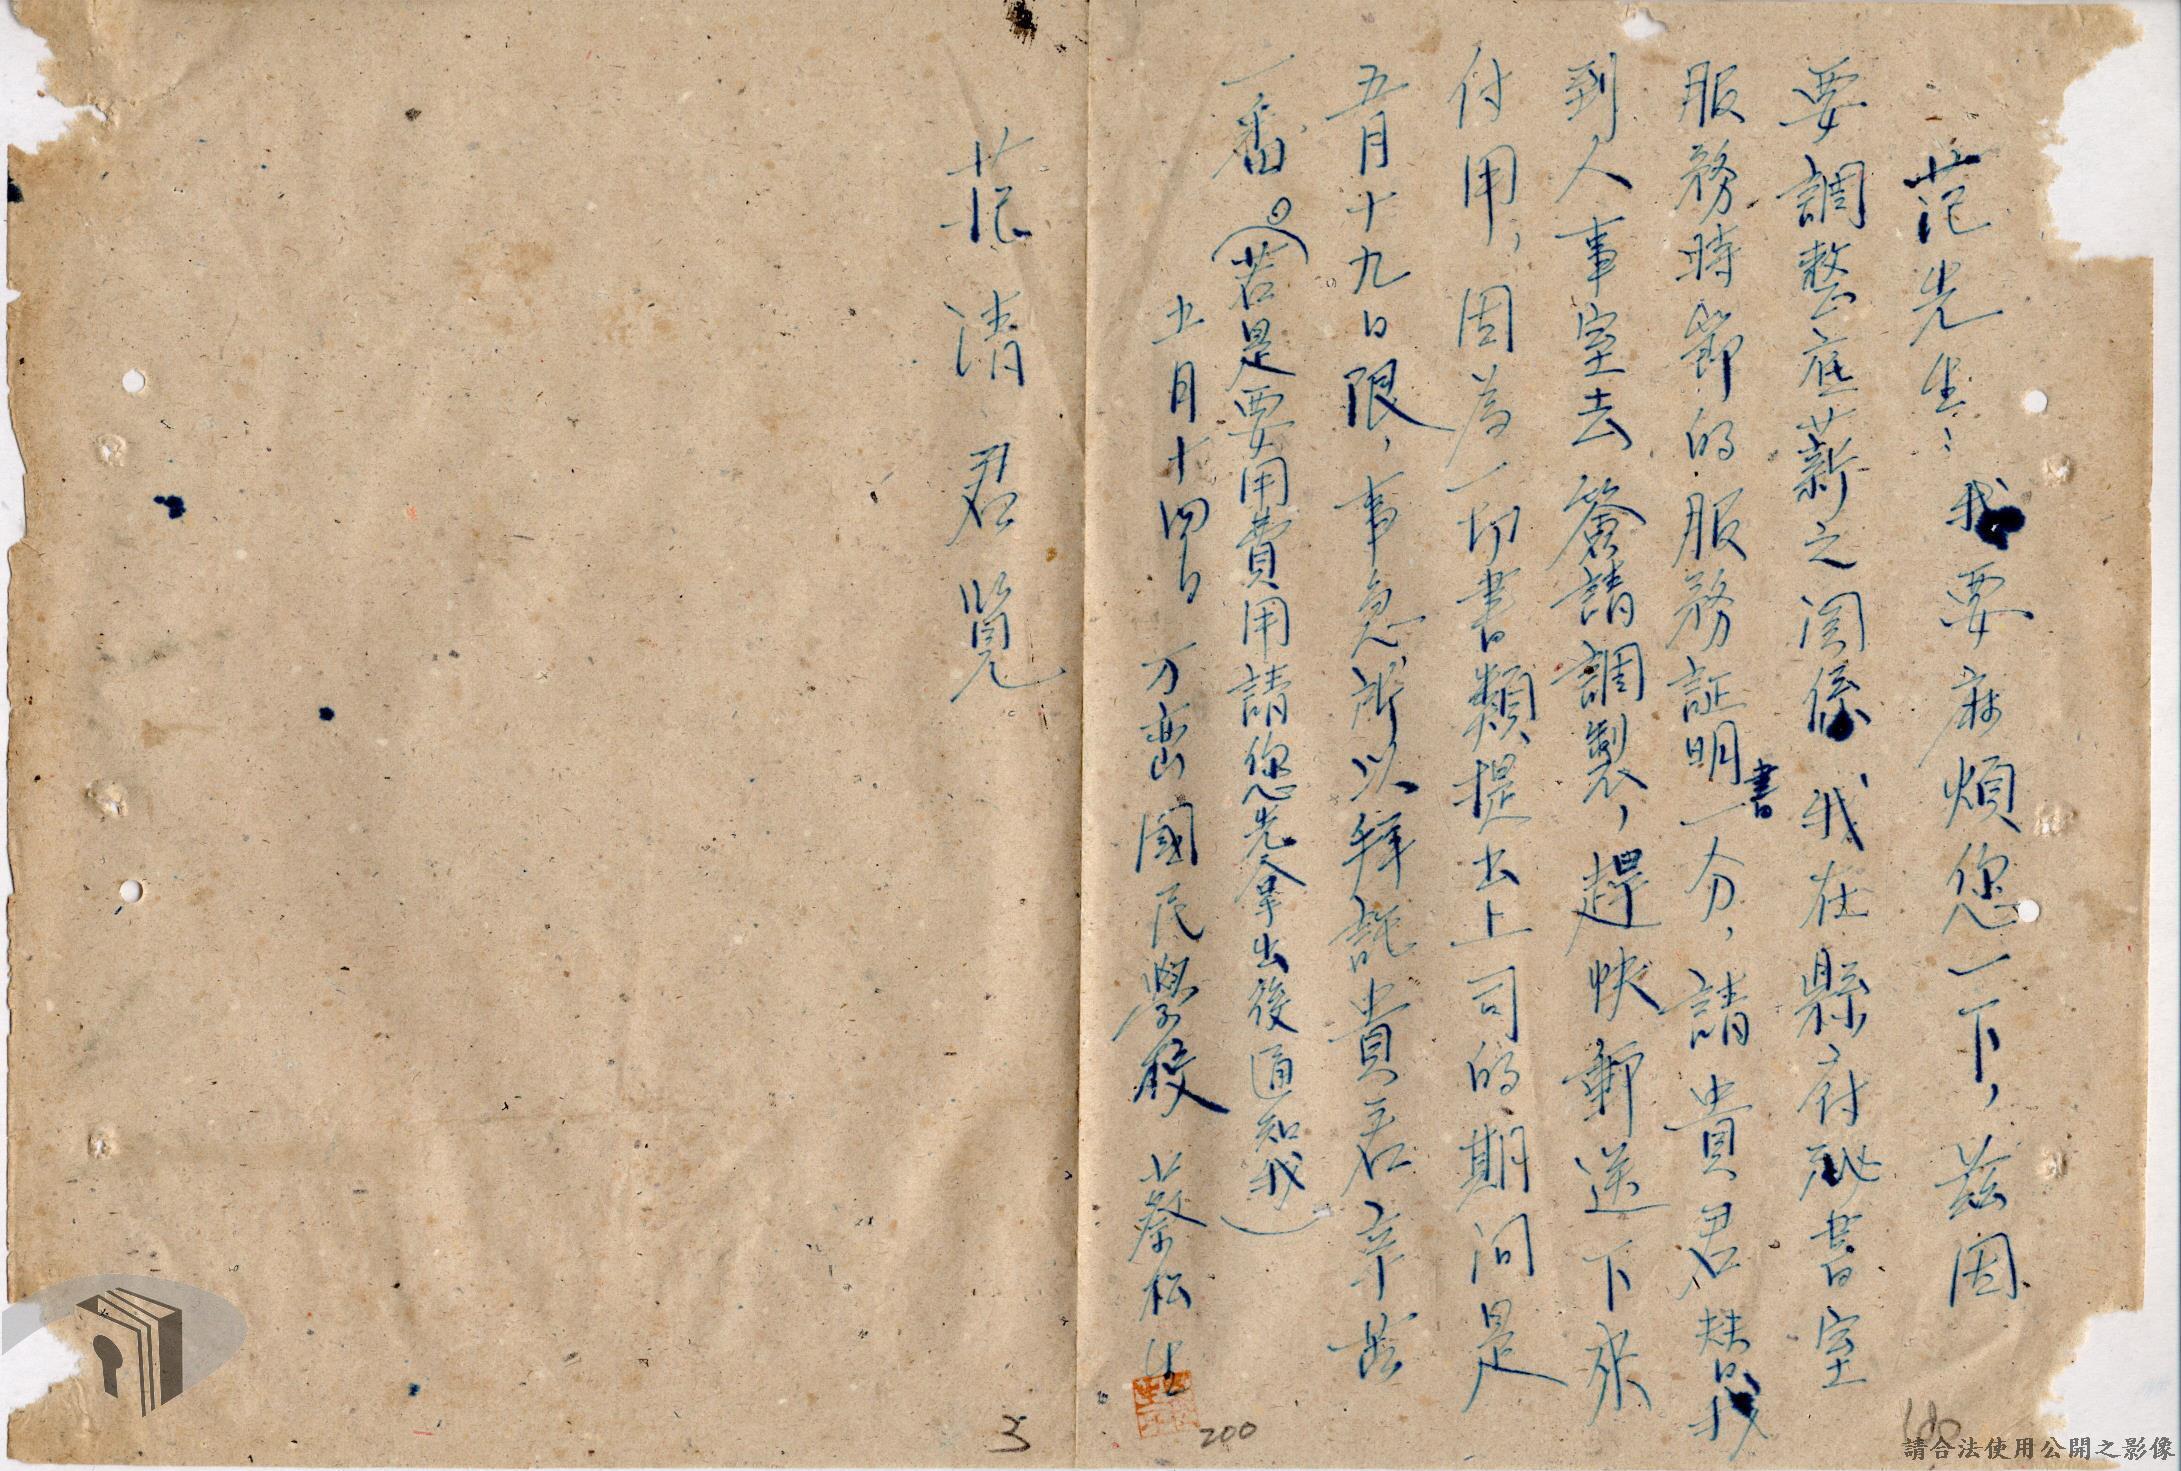 范先生:我要麻煩您一下,茲因
要調整底薪之関係 我在縣府秘書室
服務時節的服務証明書一分,請貴君替我
到人事室去簽請調製,趕快郵送下來
付用,因為一切書類提出上司的期间是
五月十九日限,事急所以拜託貴君辛苦
一番。(若是要用費用請您先拿出後通知我)
五月十四日 万峦國民學校 蔡松生
范清君覽
3
200
請合法使用公開之影像